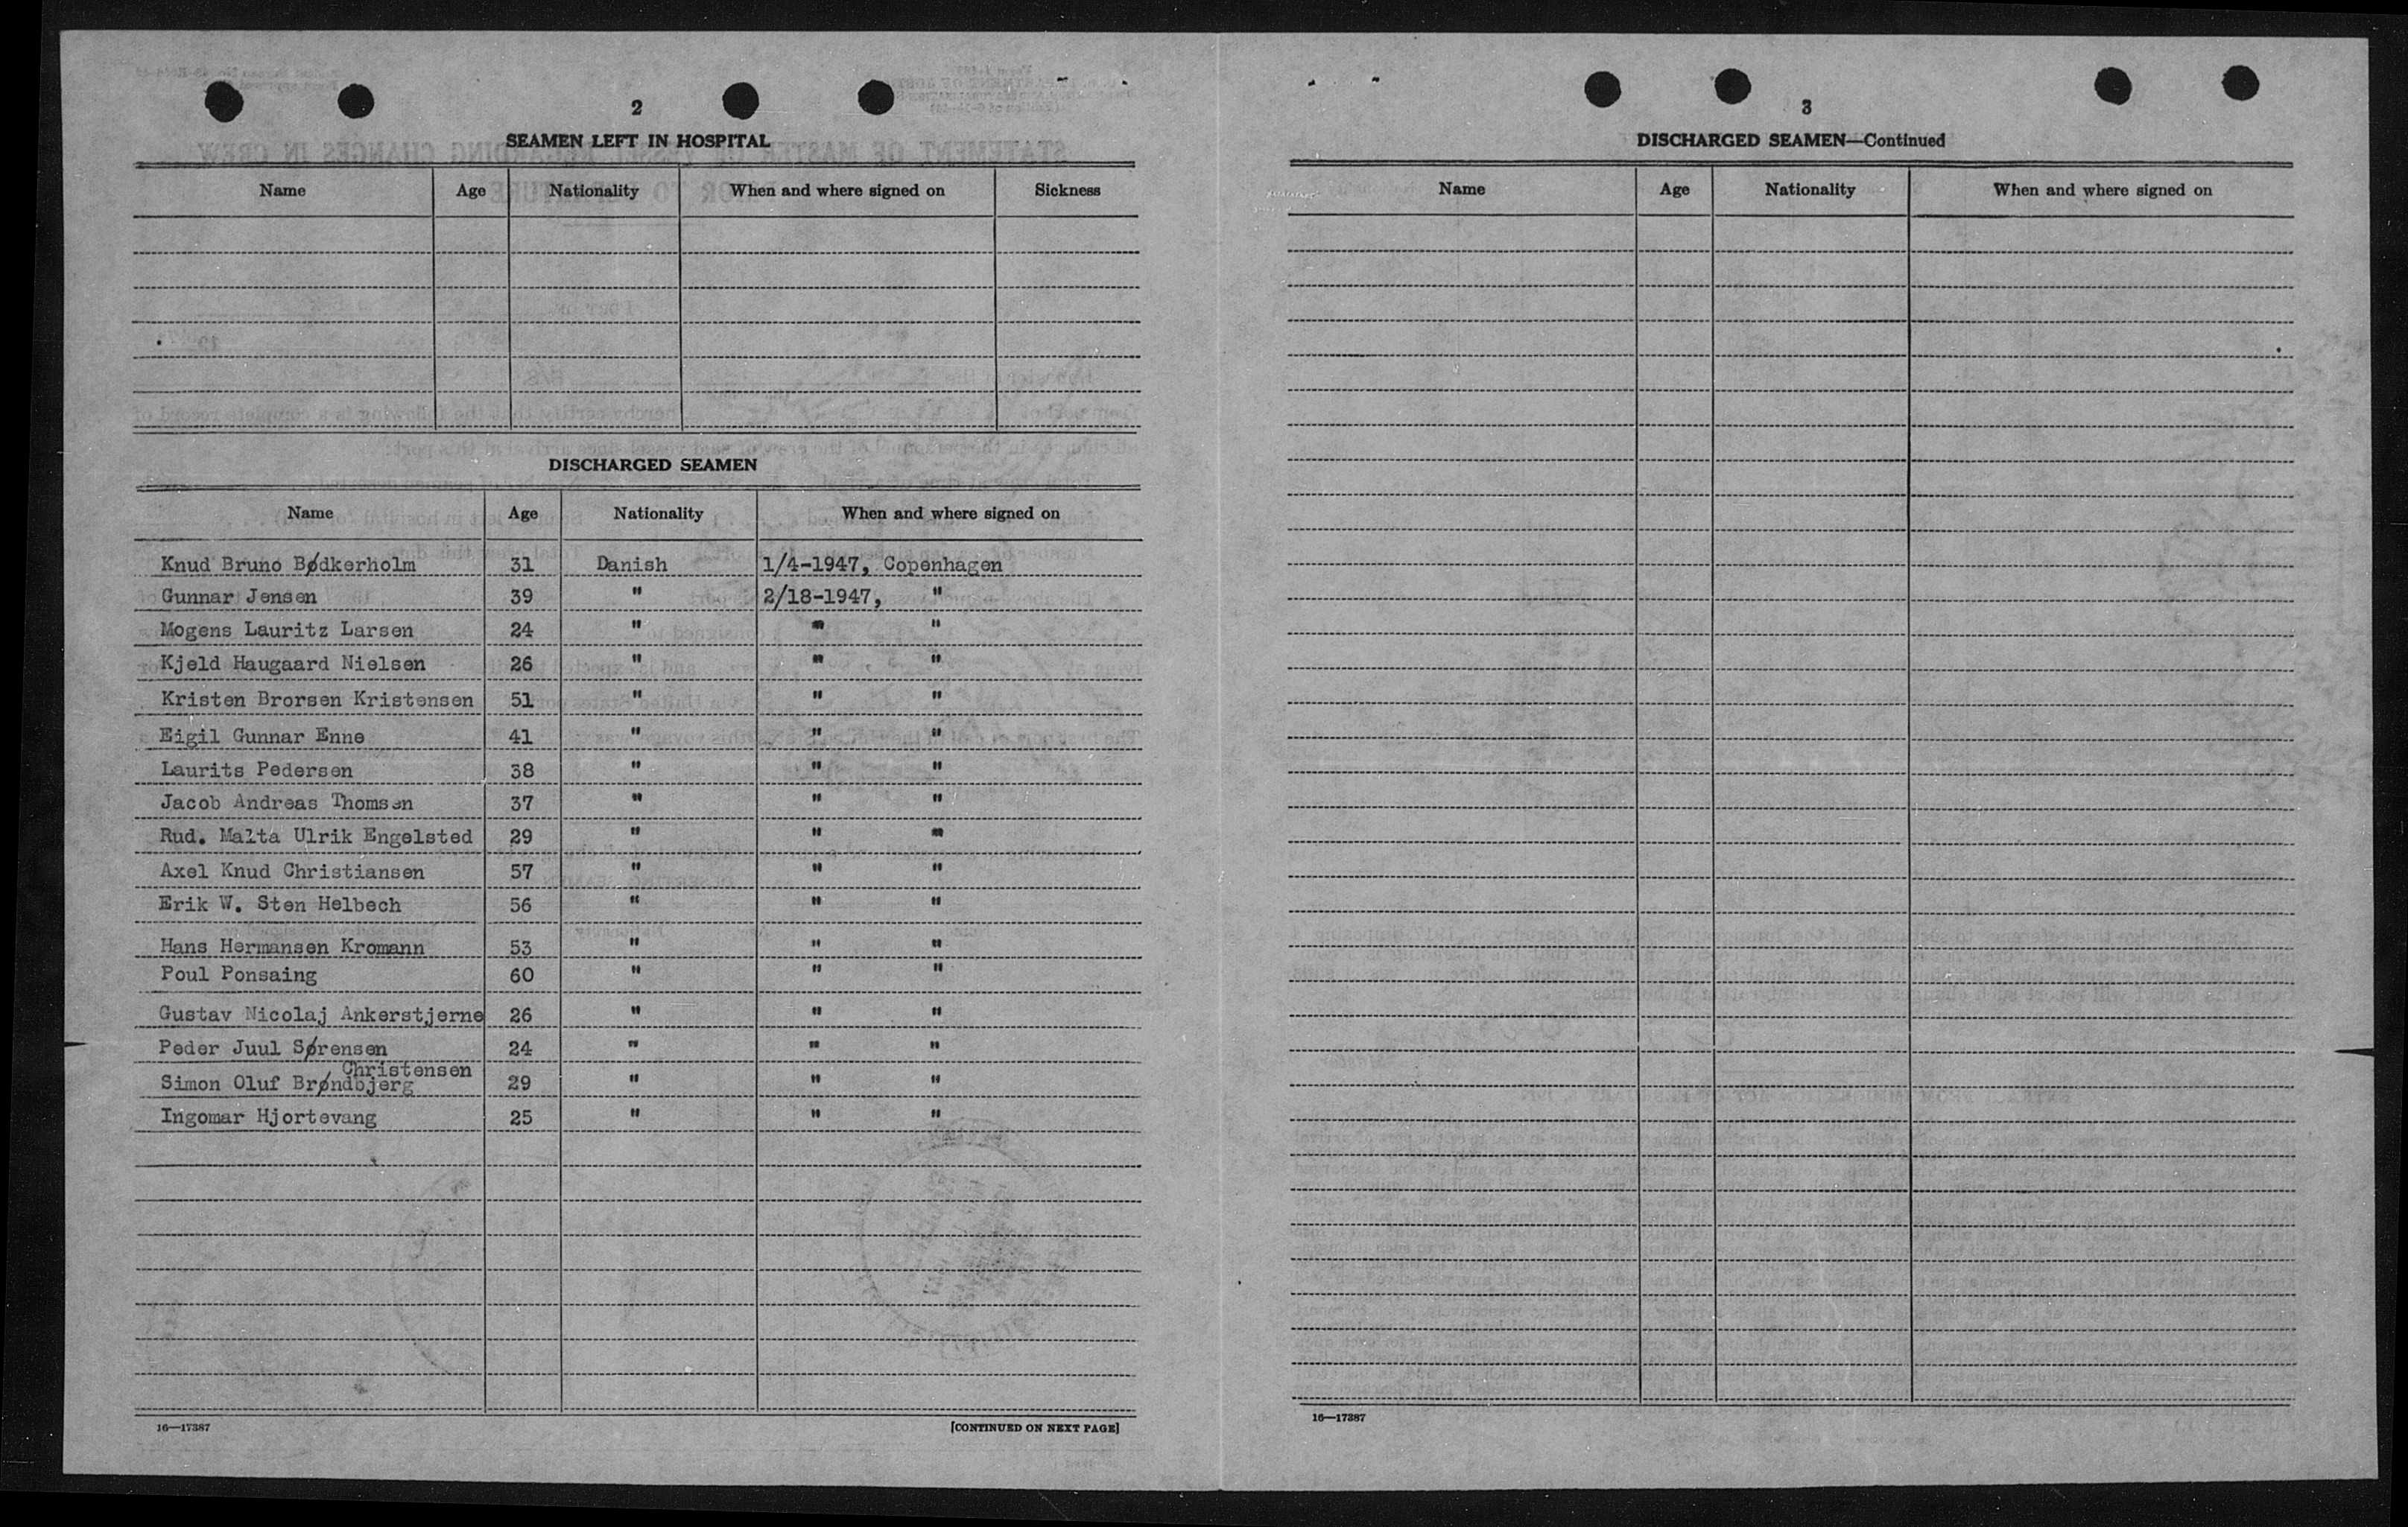 2
SEAMEN LEFT IN HOSPITAL
Name Age Nationality When and where signed on Sickness
DISCHARGED SEAMEN
Name Age Nationality When and where signed on
Knud Bruno Bødkerholm 31 Danish 1/4-1947, Copenhagen
Gunnar Jensen 39 " 2/18-1947, "
Mogens Lauritz Larsen 24 " " "
Kjeld Haugaard Nielsen 26 " " "
Kristen Brorsen Kristensen 51 " " "
Eigil Gunnar Enne 41 " " "
Laurits Pedersen 38 " " "
Jacob Andreas Thomsen 37 " " "
Rud. Malta Ulrik Engelsted 29 " " "
Axel Knud Christiansen 57 " " "
Erik W. Sten Helbech 56 " " "
Hans Hermansen Kromann 53 " " "
Poul Ponsaing 60 " " "
Gustav Nicolaj Ankerstjerne 26 " " "
Peder Juul Sørensen 24 " " "
Christensen
Simon Oluf Brøndbjerg 29 " " "
Ingomar Hjortevang 25 " " "
16—17387 [CONTINUED ON NEXT PAGE]
3
DISCHARGED SEAMEN—Continued
Name Age Nationality When and where signed on
16—17387